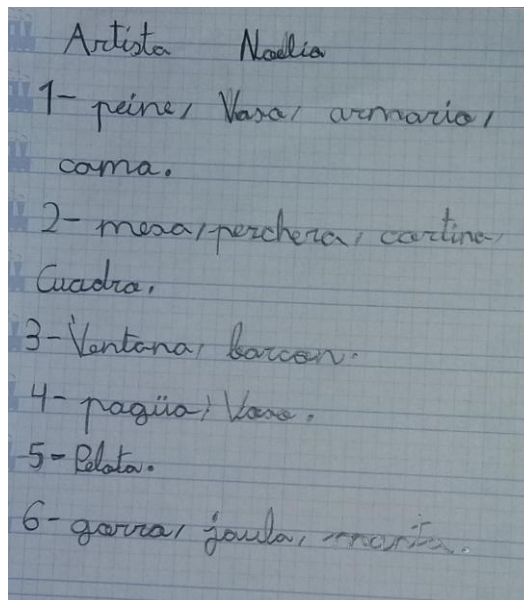 Artista Noelia
1- peine, Vasa, armario,
cama.
2- mesa, perchera, cortina,
Cuadro.
3- Ventana, barcon.
4- pagüa, Vaso.
5- Pelota.
6- gorra, jaula, manta.